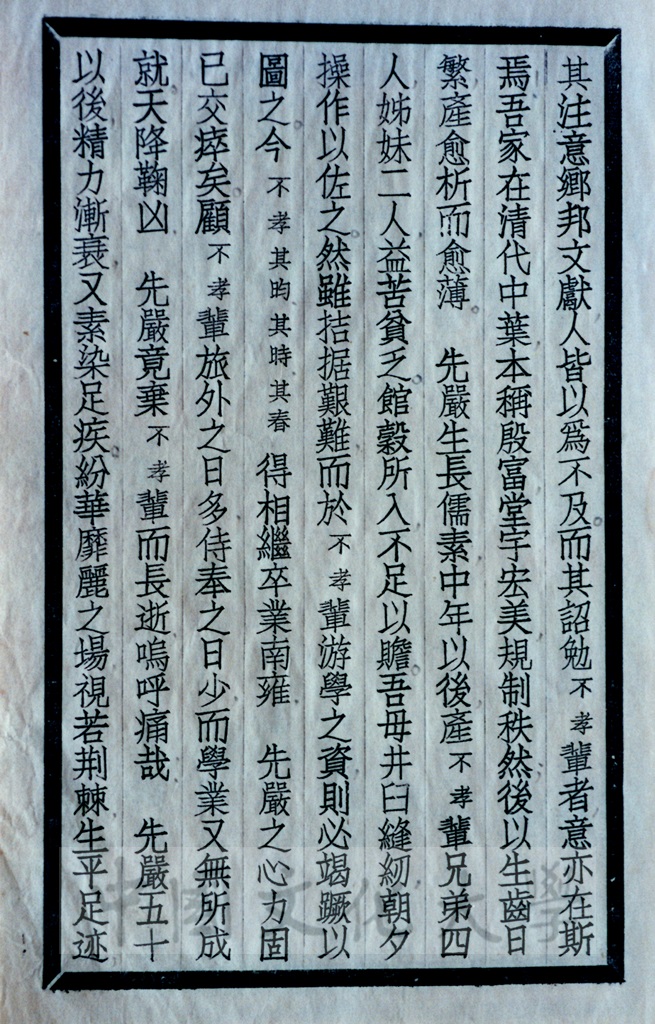 其注意鄉邦文獻人皆以爲不及而其詔勉不孝輩者意亦在斯
焉吾家在清代中葉本稱殷富堂宇宏美規制秩然後以生齒日
繁產愈析而愈薄　先嚴生長儒素中年以後產不孝輩兄弟四
人姊妹二人益苦貧乏館穀所入不足以贍吾母井臼縫紉朝夕
操作以佐之然雖拮据艱難而於不孝輩游學之資則必竭蹶以
圖之今不孝其昀其時其春得相繼卒業南雍　先嚴之心力固
已交瘁矣顧不孝輩旅外之日多侍奉之日少而學業又無所成
就天降鞠凶　先嚴竟棄不孝輩而長逝嗚呼痛哉　先嚴五十
以後精力漸衰又素染足疾紛華靡麗之場視若荆棘生平足迹
中國文化大學